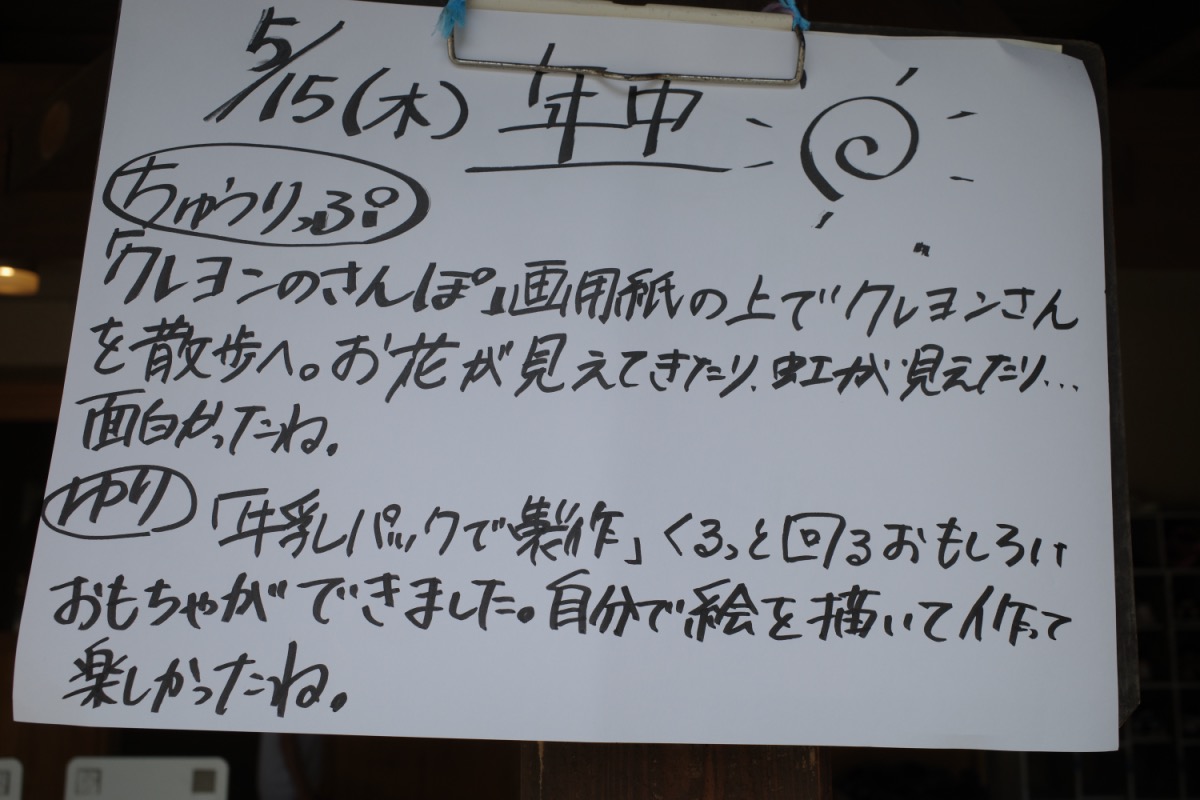 5/15(木) 年中
ちゅうりっぷ
「クレヨンのさんぽ」画用紙の上でクレヨンさん
を散歩へ。お花が見えてきたり、虹が見えたり…
面白かったね。
ゆり 「牛乳パックで製作」くるっと回るおもしろい
おもちゃができました。自分で絵を描いて作って
楽しかったね。